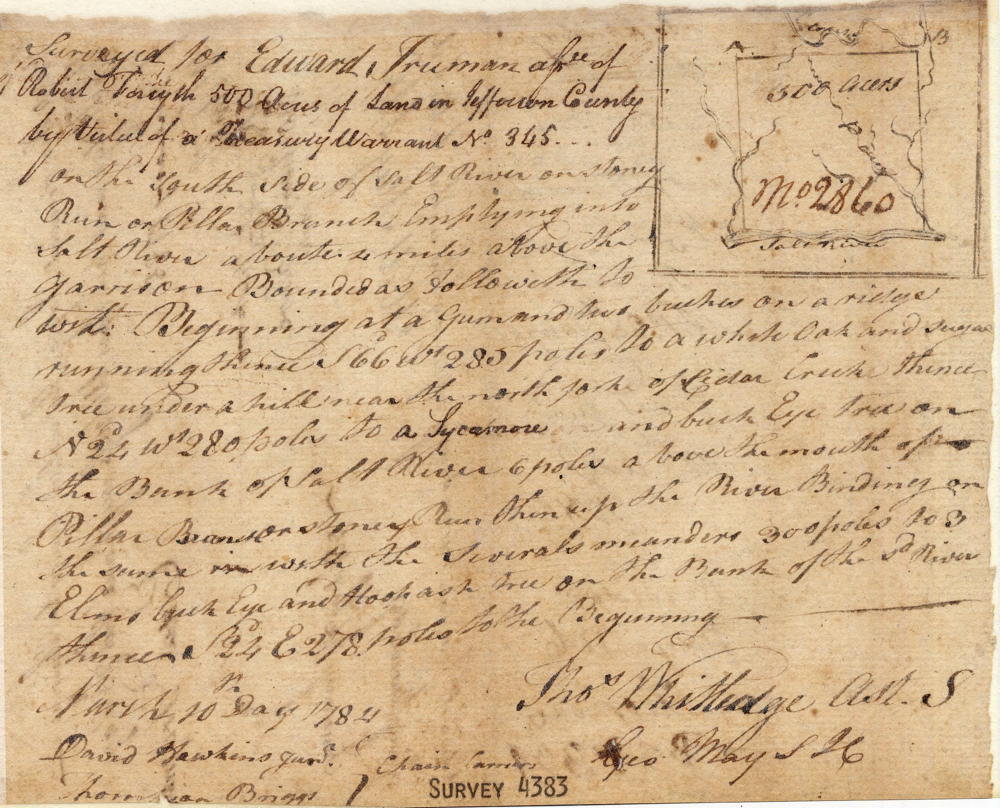 Surveyed for Edward Truman assee of
Robert Forsyth 500 Acres of Land in Jefferson County
by Virtue of a Treasury Warrant No 345...
on the South side of Salt River on stoney
Run or Pillar Branch Emptying into
Salt River aboute 2 miles above the
Garrison Bounded as followeth to
wit: Beginning at a Gum and two buches on a ridge
running thence S 66 Wt 285 poles to a white Oak and sugar
tree under a hill near the north fork of Cedar Creek thence
N 24 Wt 280 poles to a Sycamore and buck Eye tree on
the Bank of Salt River 6 poles above the mouth of
Pillar Branc or stoney Run then up the River Binding on
the same with the severals meanders 300 poles to 3
Elms buck Eye and Hoop ash tree on the Bank of the sd River
thence S 24 E 278 poles to the Beginning
March 10th Day 1784
Thos Whitledge Ast. S
David Hawkins junr.
Chain Carriers
Geo May S J C
Thompson Briggs
SURVEY 4383
A
B
500 Acers
Mo 2860
Salt River